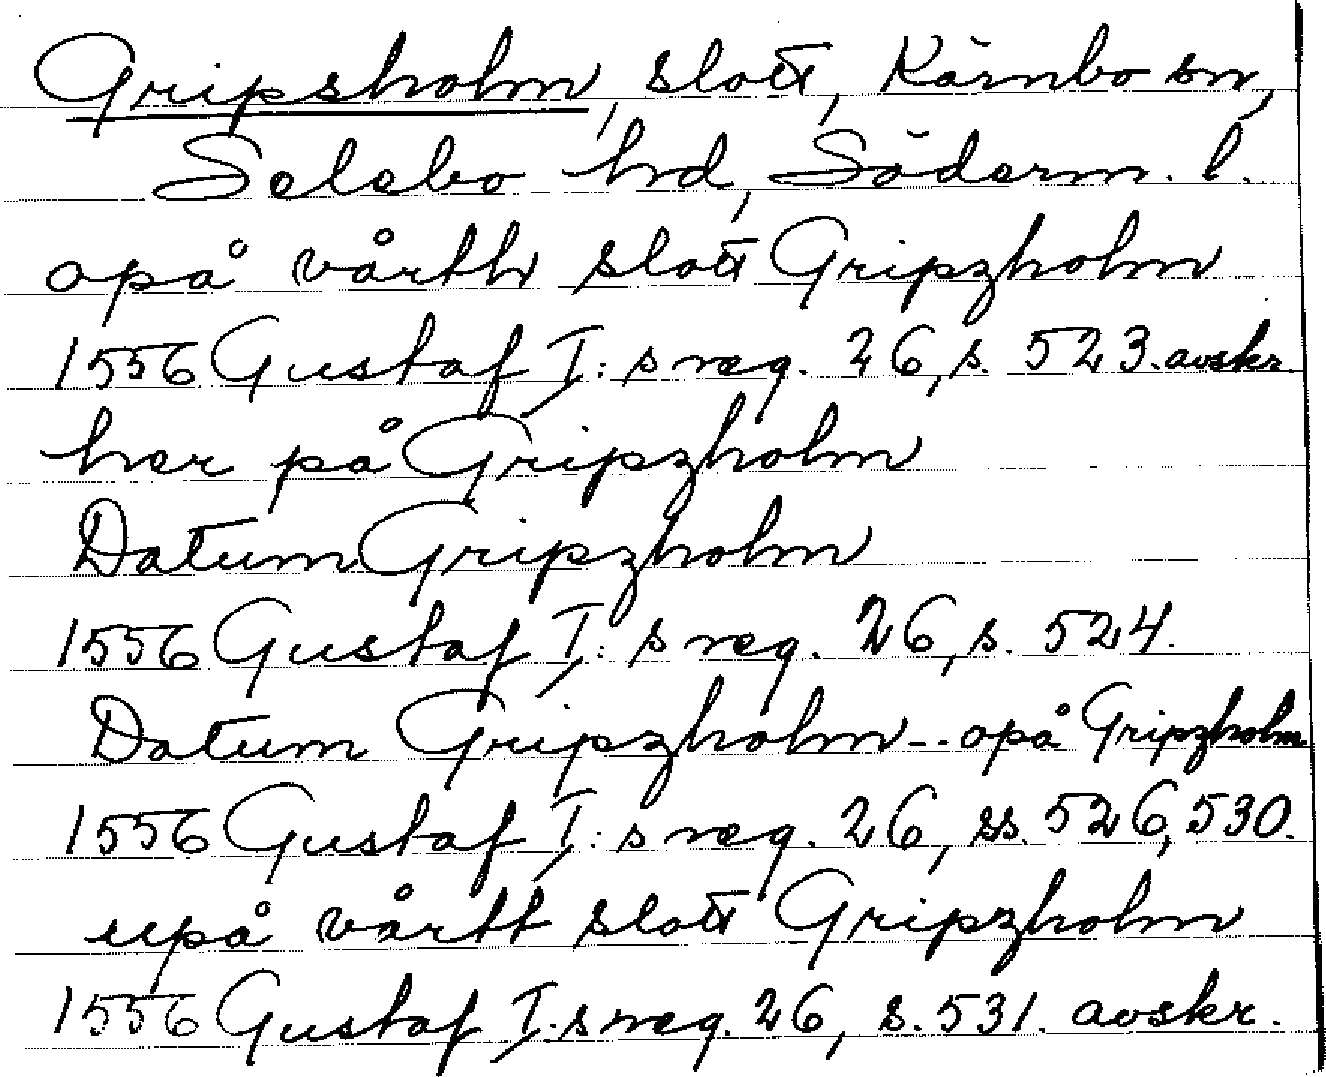 Gripsholm, slott, Kärnbo sn,
Selebo hd, Söderm. l.
opå vårth slott Gripzholm
1556 Gustaf I: s reg. 26, s. 523. avskr.
her på Gripzholm
Datum Gripzholm
1556 Gustaf I: s reg. 26, s. 524.
Datum Gripzholm -- opå Gripzholm
1556 Gustaf I: s reg. 26, ss. 526, 530.
upå vårtt slott Gripzholm
1556 Gustaf I: s reg. 26, s. 531. avskr.